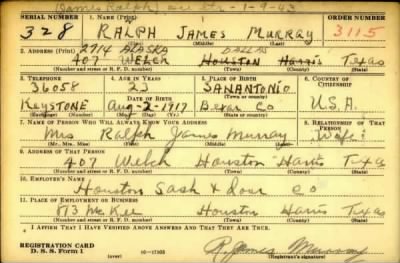 (James Ralph) 1-9-43
SERIAL NUMBER 1. NAME (Print) ORDER NUMBER
328 RALPH JAMES MURRAY 3115
(First) (Middle) (Last)
2. ADDRESS (Print) 2714 ALASKA DALLAS
407 WELCH HOUSTON Harris Texas
(Number and street or R. F. D. number) (Town) (County) (State)
3. TELEPHONE 4. AGE IN YEARS 5. PLACE OF BIRTH 6. COUNTRY OF CITIZENSHIP
36058 23 SAN ANTONIO
Keystone DATE OF BIRTH Aug-2-1917 Bexar Co U.S.A.
(Exchange) (Number) (Mo.) (Day) (Yr.) (State or country)
7. NAME OF PERSON WHO WILL ALWAYS KNOW YOUR ADDRESS 8. RELATIONSHIP OF THAT PERSON
Mrs Ralph James Murray Wife
(Mr., Mrs., Miss) (First) (Middle) (Last)
9. ADDRESS OF THAT PERSON
407 Welch Houston Harris Texas
(Number and street or R. F. D. number) (Town) (County) (State)
10. EMPLOYER'S NAME
Houston Sash & Door Co
11. PLACE OF EMPLOYMENT OR BUSINESS
813 McKee Houston Harris Texas
(Number and street or R. F. D. number) (Town) (County) (State)
I AFFIRM THAT I HAVE VERIFIED ABOVE ANSWERS AND THAT THEY ARE TRUE.
REGISTRATION CARD
D. S. S. Form 1 (over) R. James Murray
(Registrant's signature)